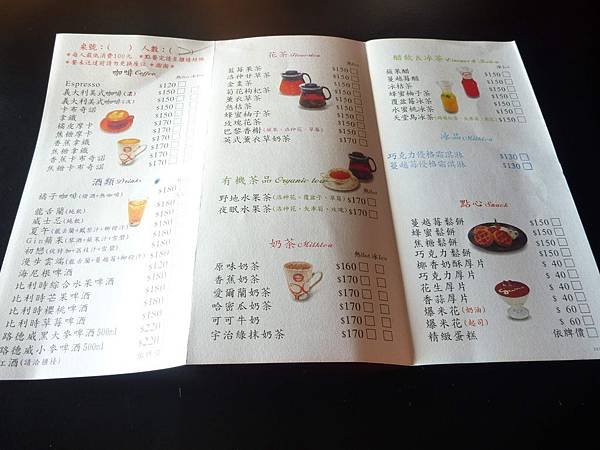 桌號:( ) 人數:( )
咖啡 Coffee
Espresso $120
義大利美式咖啡(濃) $150
義大利美式咖啡(淡) $150
卡布奇諾 $150
拿鐵 $150
橘皮摩卡
焦糖摩卡
香蕉拿鐵
焦糖拿鐵
香蕉卡布奇諾
酒類 Drinks
橘子咖啡 $180
龍舌蘭(純飲) $180
威士忌(純飲)
夏午
Gin蘋果
初戀 $180
漫步雲端 $180
海尼根啤酒 $120
比利時綜合水果啤酒 $180
比利時芒果啤酒 $180
比利時櫻桃啤酒 $180
比利時草莓啤酒 $180
路德威黑大麥啤酒500ml $220
路德威小麥啤酒500ml $220
紅酒(請洽櫃檯) 依牌價
花茶
藍莓果茶 $150
洛神甘草茶 $150
金棗茶 $150
菊花枸杞茶 $150
薰衣草茶 $150
熱桔茶 $150
蜂蜜柚子茶 $150
玫瑰花茶 $150
巴黎香榭 $150
英式薰衣草奶茶 $150
有機茶品 Organic tea
野地水果茶(洛神花、覆盆子、草莓) $170
夜眠水果茶 $170
奶茶 Milktea
熱Hot 冰Ice
原味奶茶 $160
香蕉奶茶 $170
愛爾蘭奶茶 $170
哈密瓜奶茶 $170
可可牛奶 $170
宇治綠抹奶茶 $170
醋飲&冰茶
蘋果醋 $150
蔓越莓醋 $150
冰桔茶 $150
蜂蜜柚子茶 $150
覆盆莓冰茶 $150
水蜜桃冰茶 $150
天堂鳥冰茶 $150
冰品
巧克力優格霜淇淋 $130
蔓越莓優格霜淇淋 $130
點心 Snack
蔓越莓鬆餅 $150
蜂蜜鬆餅 $150
焦糖鬆餅 $150
巧克力鬆餅 $150
椰香奶酥厚片 $ 40
巧克力厚片 $ 40
花生厚片 $ 40
香蒜厚片 $ 40
爆米花(奶油) $ 60
爆米花(起司) $ 60
精緻蛋糕 依牌價